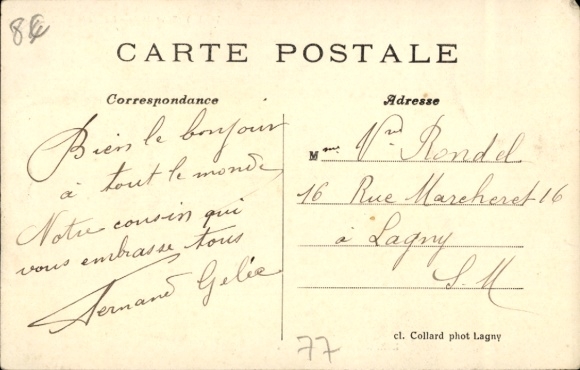 84
CARTE POSTALE
Correspondance
Bien le bonjour
à tout le monde
Notre cousin qui
vous embrasse tous
Fernand Gelée
Adresse
Mme Vve Rondel
16 Rue Marcheret 16
à Lagny
S. M
77
cl. Collard phot Lagny